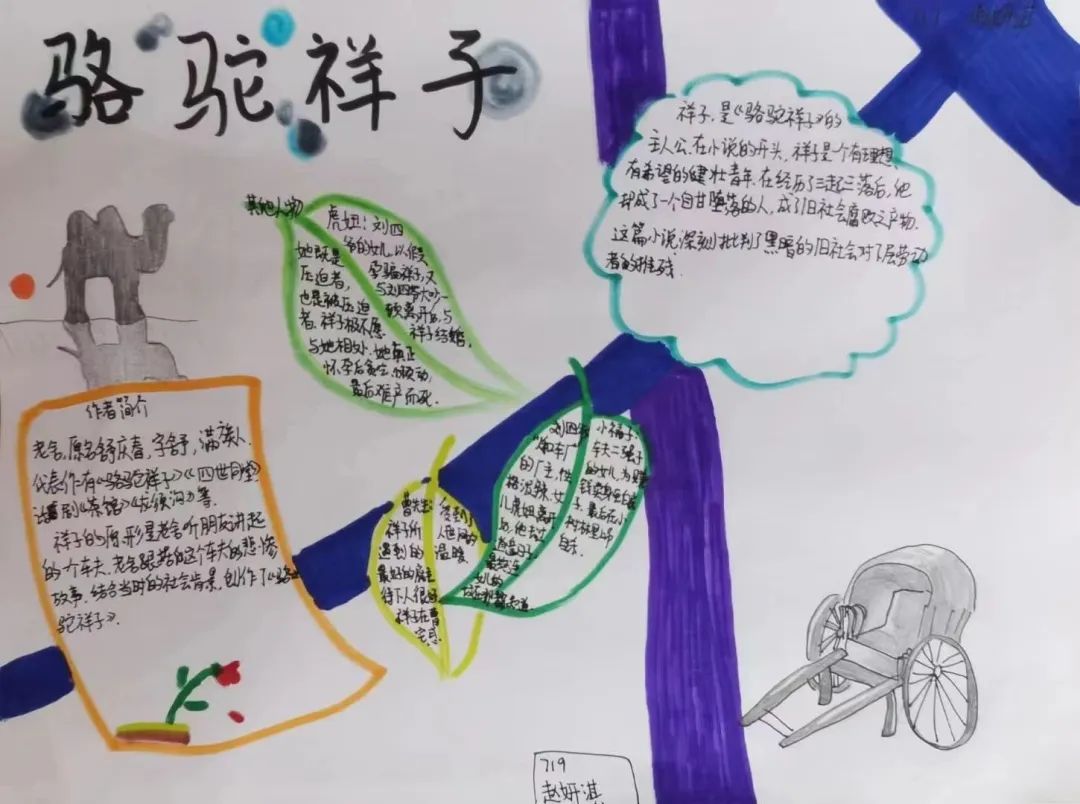 骆驼祥子
祥子,是《骆驼祥子》的
主人公,在小说的开头,祥子是个有理想、
有希望的健壮青年,在经历了三起三落后,他
却成了一个自甘堕落的人,成了旧社会腐败之产物.
这篇小说,深刻批判了黑暗的旧社会对下层劳动
者的摧残.
其他人物
虎妞:刘四
爷的女儿,以假
孕骗祥子,又
与刘四爷大吵一
顿离开后,与
祥子结婚,
她既是
压迫者,
也是被压迫
者,祥子极不愿
与她相处,她真正
怀孕后贪生
最后难产而死.
作者简介
老舍,原名舒庆春,字舍予,满族人.
代表作有《骆驼祥子》《四世同堂》
话剧《茶馆》《龙须沟》等.
祥子的原形是老舍听朋友讲起
的一个车夫,老舍跟据这个车夫的悲惨
故事,结合当时的社会背景,创作了《骆
驼祥子》.
曹先生:
祥子所
遇到的
最好的雇主
待下人很好
祥子在曹
宅感
受到了
人世间的
温暖
刘四爷
车厂
的厂主,性
格泼辣,女
儿虎妞离开
后,他去
小福子
车夫二强子
的女儿,为
钱卖身
子,最后在小
树林里上吊
自杀.
719
赵妍淇